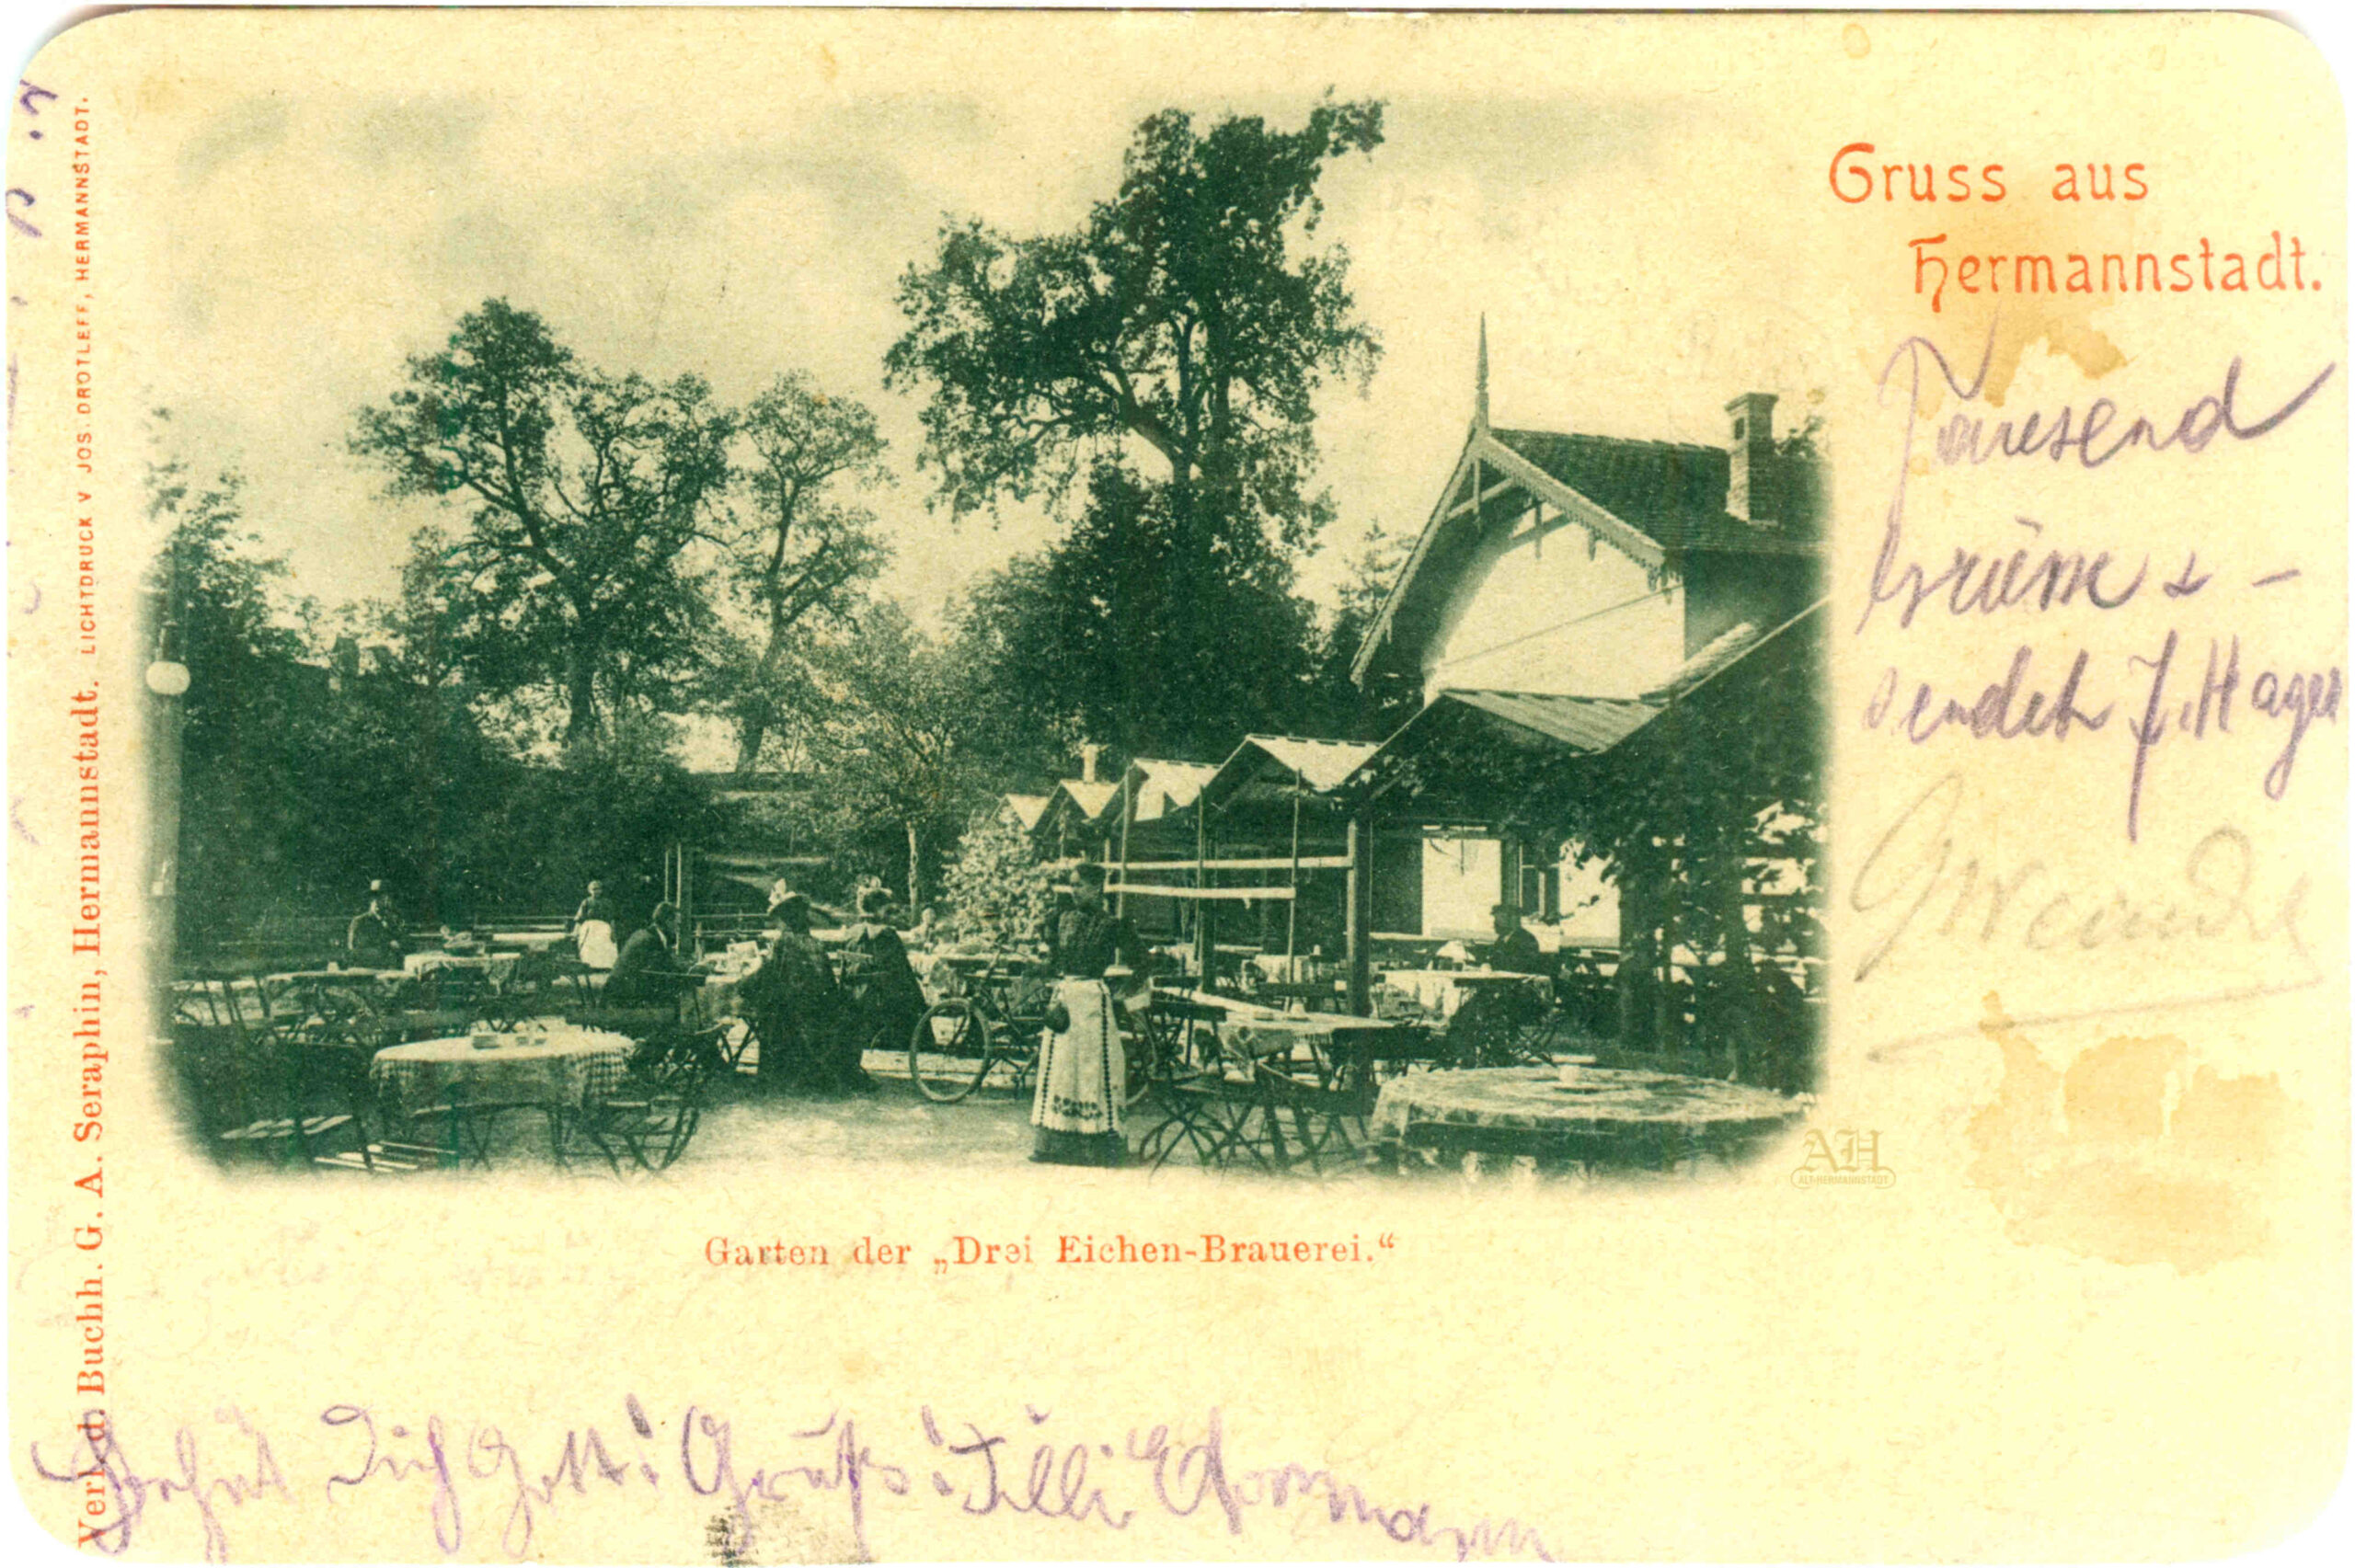 Gruss aus
Hermannstadt.
Tausend
Grüsse &
sendet J. Hager
Garten der „Drei Eichen-Brauerei.“
Behüt Dich Gott! Gruß! Tilli
Verl. d. Buchh. G. A. Seraphin, Hermannstadt. LICHTDRUCK V JOS. DROTLEFF, HERMANNSTADT.
AH
ALT-HERMANNSTADT